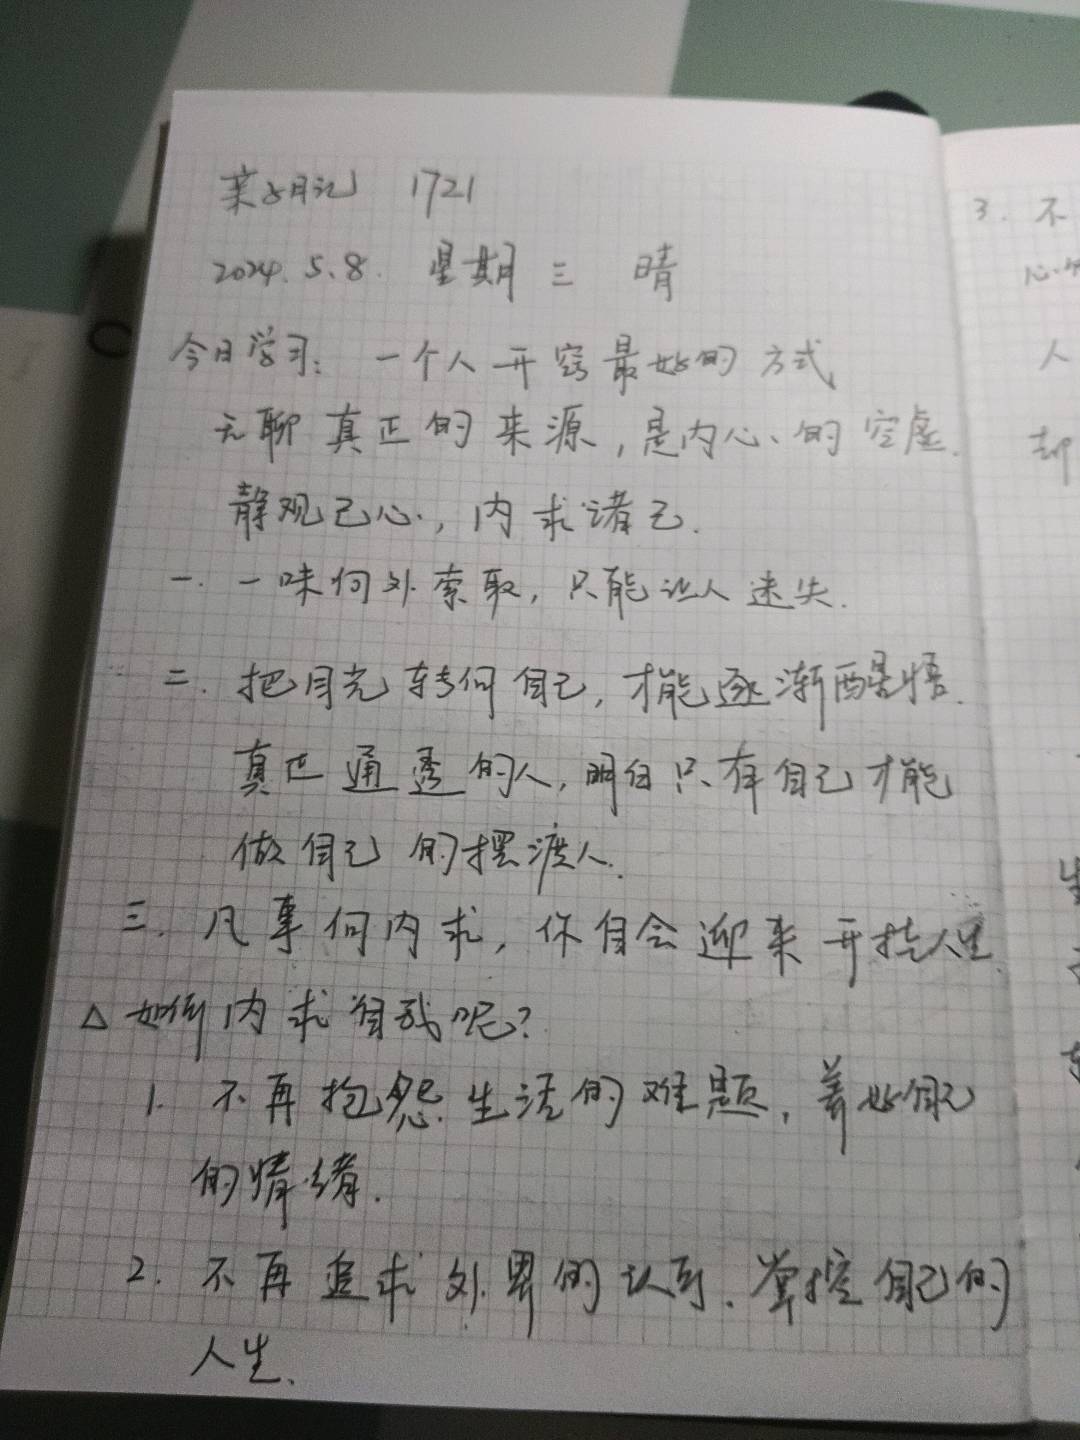 日记 1721
2024.5.8. 星期三 晴
今日学习: 一个人开窍最好的方式
无聊真正的来源,是内心的空虚.
静观己心,内求诸己.
一. 一味向外索取,只能让人迷失.
二. 把目光转向自己,才能逐渐醒悟.
真正通透的人,明白只有自己才能
做自己的摆渡人.
三. 凡事向内求,你自会迎来开挂人生.
△ 如何内求自我呢?
1. 不再抱怨生活的难题,养好自己
的情绪.
2. 不再追求外界的认可.掌控自己的
人生.
3. 不
心
人
却